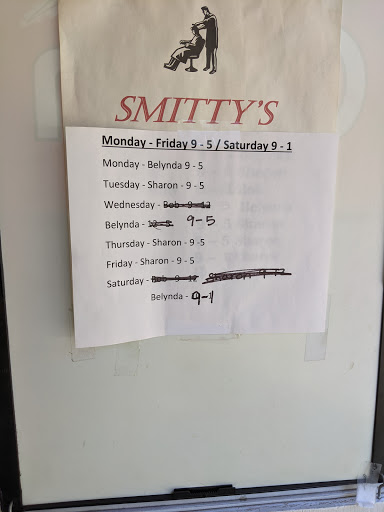 SMITTY'S
Monday - Friday 9 - 5 / Saturday 9 - 1
Monday - Belynda 9 - 5
Tuesday - Sharon - 9 - 5
Wednesday - Bob - 9 - 12
Belynda - 12 - 5 9-5
Thursday - Sharon - 9 -5
Friday - Sharon - 9 - 5
Saturday - Bob - 9 - 12
Belynda - 9-1